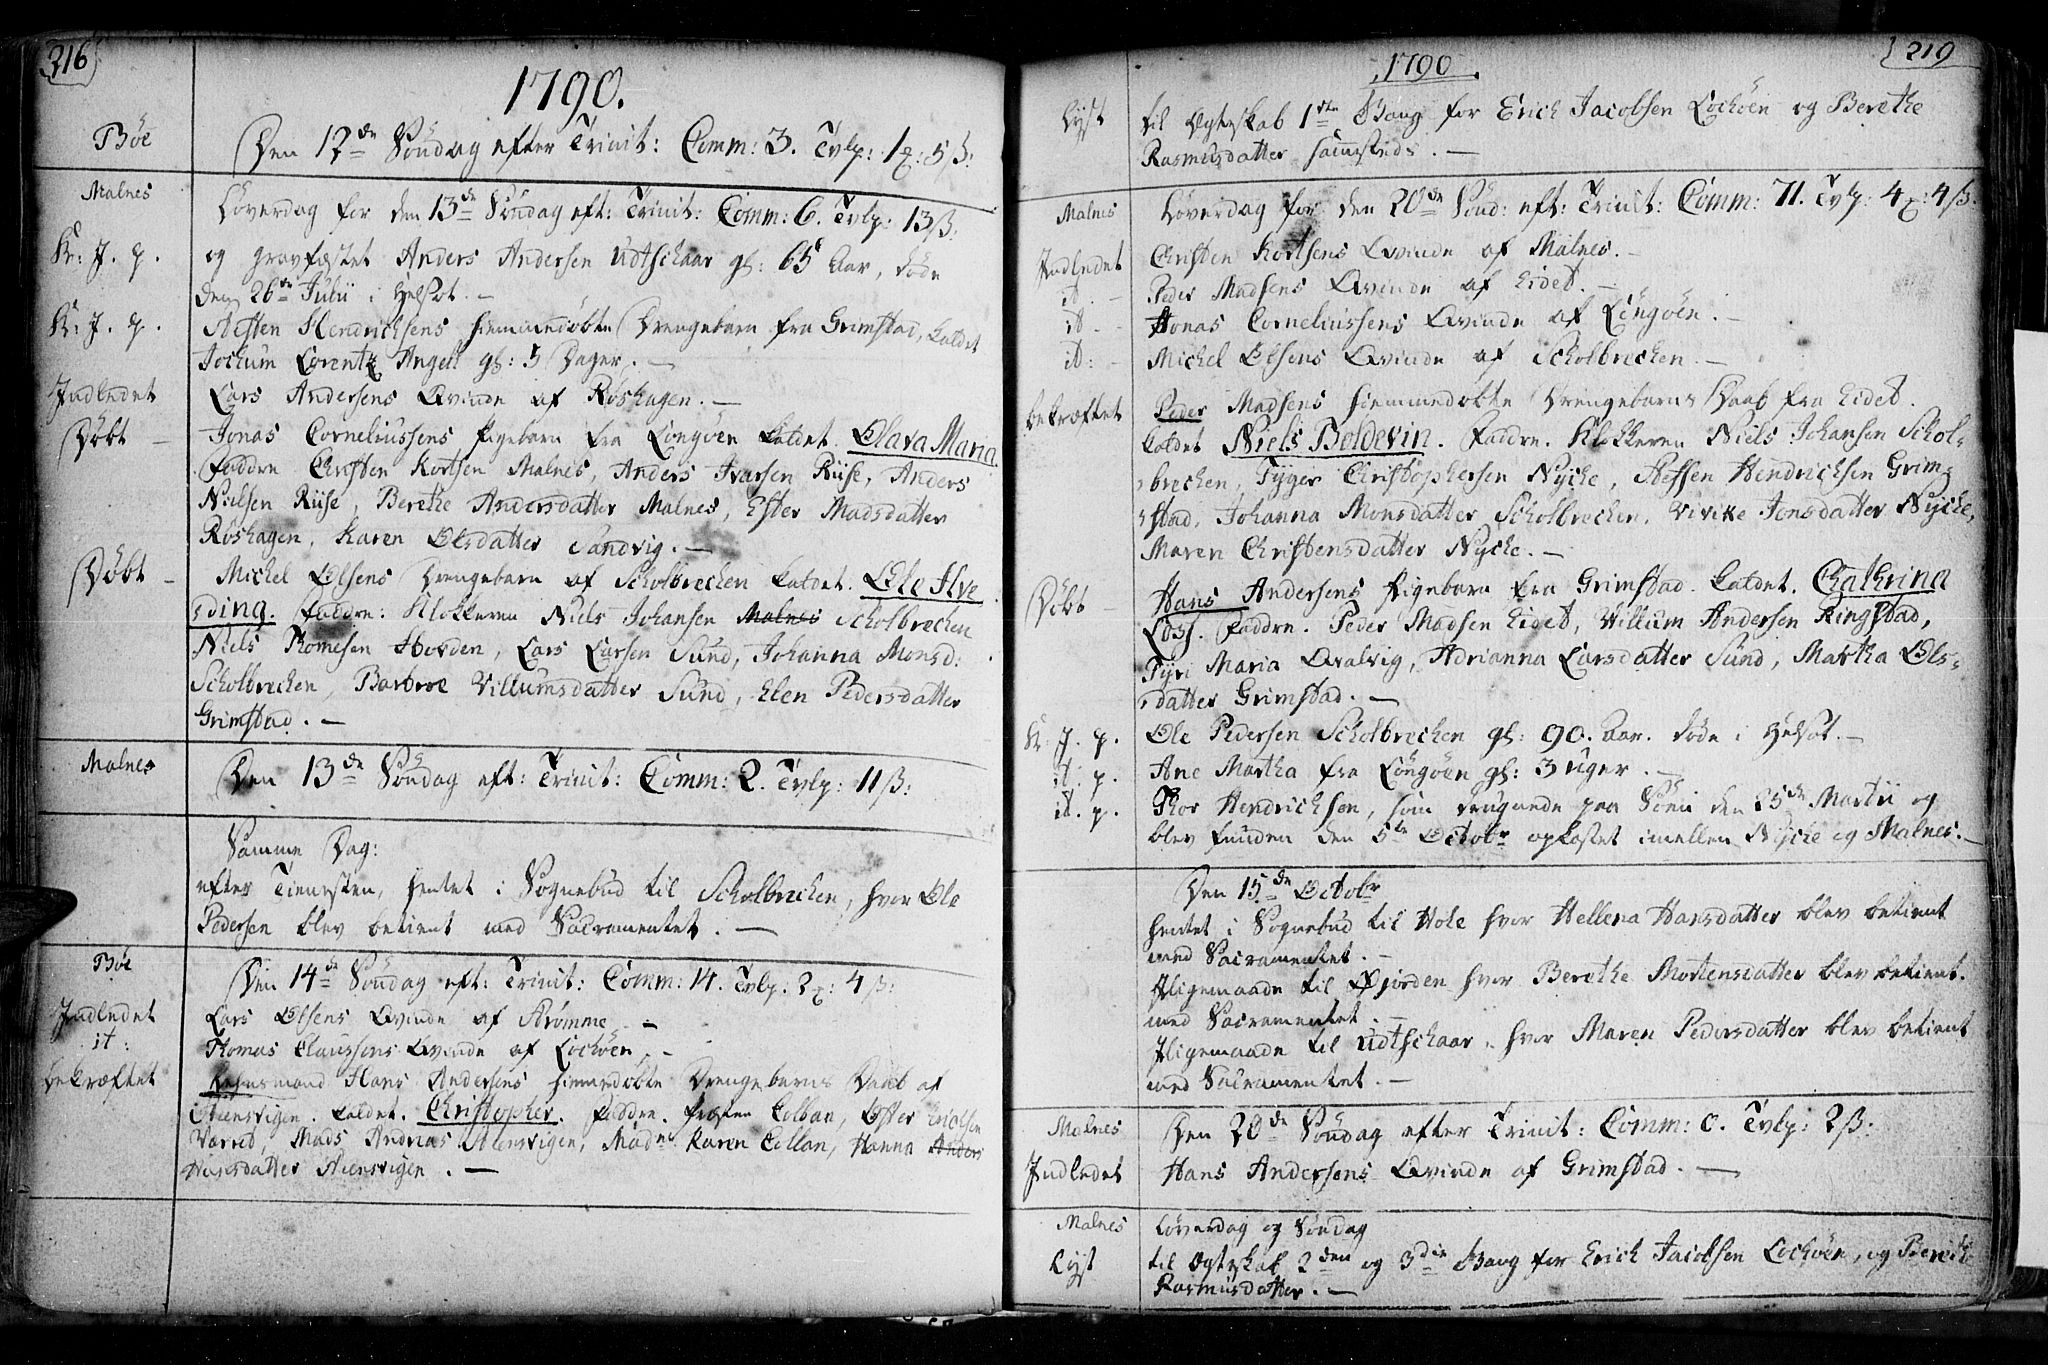 316
1790.
Bøe
Den 12de Søndag efter Trinit: Comm: 3. Tvlp: 1 5 ß:
Malnes
Løverdag for den 13de Søndag eft: Trinit: Comm: 6. Tvlp: 13 ß:
K: J. p.
og gravfæstet Anders Andersen Udtschaar gl: 65 Aar, døde
den 26de Julii i Helsot. —
K: J. p.
Steffen Hendrichsens hiemmedøbte Drengebarn fra Grimstad, kaldet
Jochum Lorentz Angell gl: 5 Dager. —
Indledet
Lars Andersens Qvinde af Røshagen. —
Døbt —
Jonas Corneliussens Pigebarn fra Longøen kaldet Olava Maria
Faddre Christen Kortsen Malnes, Anders Ivarsen Riise, Anders
Nielsen Riise, Berethe Andersdatter Malnes, Ester Madsdatter
Røshagen, Karen Olsdatter Sandvig. —
Døbt —
Michel Olsens Drengebarn af Scholbrechen kaldet Ole Hve
ding. Faddre: Klokkeren Niels Johansen Malnes Scholbrechen
Niels Thomesen Hovden, Lars Larsen Sund, Johanna Monsd:
Scholbrechen, Barbroe Villumsdatter Sund, Elen Pedersdatter
Grimstad. —
Malnes
Den 13de Søndag eft: Trinit: Comm: 2. Tvlp: 11 ß:
Samme Dag:
efter Tienesten, hentet i Sognebud til Scholbrechen, hvor Ole
Pedersen blev betient med Sacramentet. —
Bøe
Den 14de Søndag eft: Trinit: Comm: 14. Tvlp: 2 4 ß:
Indledet
Lars Olsens Qvinde af Strømme —
it:
Thomas Claussens Qvinde af Lochøen, —
bekræftet
Lehnsmand Hans Andersens hiemmedøbte Drengebarns Daab af
Steensvigen. kaldet. Christopher. Faddre. Colban, Ester
Mads Andreas Steensvigen, Madme Karen Colban, Hanna Anders
Hansdatter Steensvigen. —
219
1790
Lyst
til Ægteskab 1ste Gang for Erich Jacobsen Lochøen og Berethe
Rasmusdatter sammesteds. —
Malnes
Løverdag for den 20de Sønd: eft: Trinit: Comm: 71. Tvlp: 4 4 ß:
Indledet
Christen Kortsens Qvinde af Malnes. —
it. —
Peder Madsens Qvinde af Eidet. —
it —
Jonas Corneliussens Qvinde af Longøen. —
it: —
Michel Olsens Qvinde af Scholbrechen. —
bekræftet
Peder Madsens hiemmedøbte Drengebarns Daab fra Eidet.
kaldet Niels Boldevin. Faddre. Klokkeren Niels Johansen Schol-
brechen, Tyger Christophersen Nyche, Steffen Hendrichsen Grim-
stad, Johanna Monsdatter Scholbrechen, Vivike Jonsdatter Nyche,
Maren Christensdatter Nyche. —
Døbt —
Hans Andersens Pigebarn fra Grimstad kaldet. Chathrina
Faddre. Peder Madsen Eidet, Villum Andersen Ringstad,
Tyri Maria Qvalvig, Adrianna Larsdatter Sund, Martha Ols-
datter Grimstad. —
K: J. p.
Ole Pedersen Scholbrechen gl: 90. Aar. døde i Helsot. —
it. p.
Ane Martha fra Longøen gl: 3 Uger. —
it. p.
Thor Hendrichsen, som drugnede paa Søen den 25de Martii og
blev funden den 5te Octobr opkastet imellem Nyche og Malnes. —
Den 15de Octobr
hentet i Sognebud til Hole hvor Hellena Hansdatter blev betient
med Sacramentet. —
Ligemaade til Øjorden hvor Berethe Mortensdatter blev betient.
med Sacramentet. —
Ligemaade til Udtschaar, hvor Maren Pedersdatter blev betient
med Sacramentet. —
Malnes
Den 20de Søndag efter Trinit: Comm: 0. Tvlp: 2 ß:
Indledet
Hans Andersens Qvinde af Grimstad. —
Malnes
Løverdag og Søndag
Lyst
til Ægteskab 2den og 3die Gang for Erich Jacobsen Lochøen, og Berethe
Rasmusdatter. —